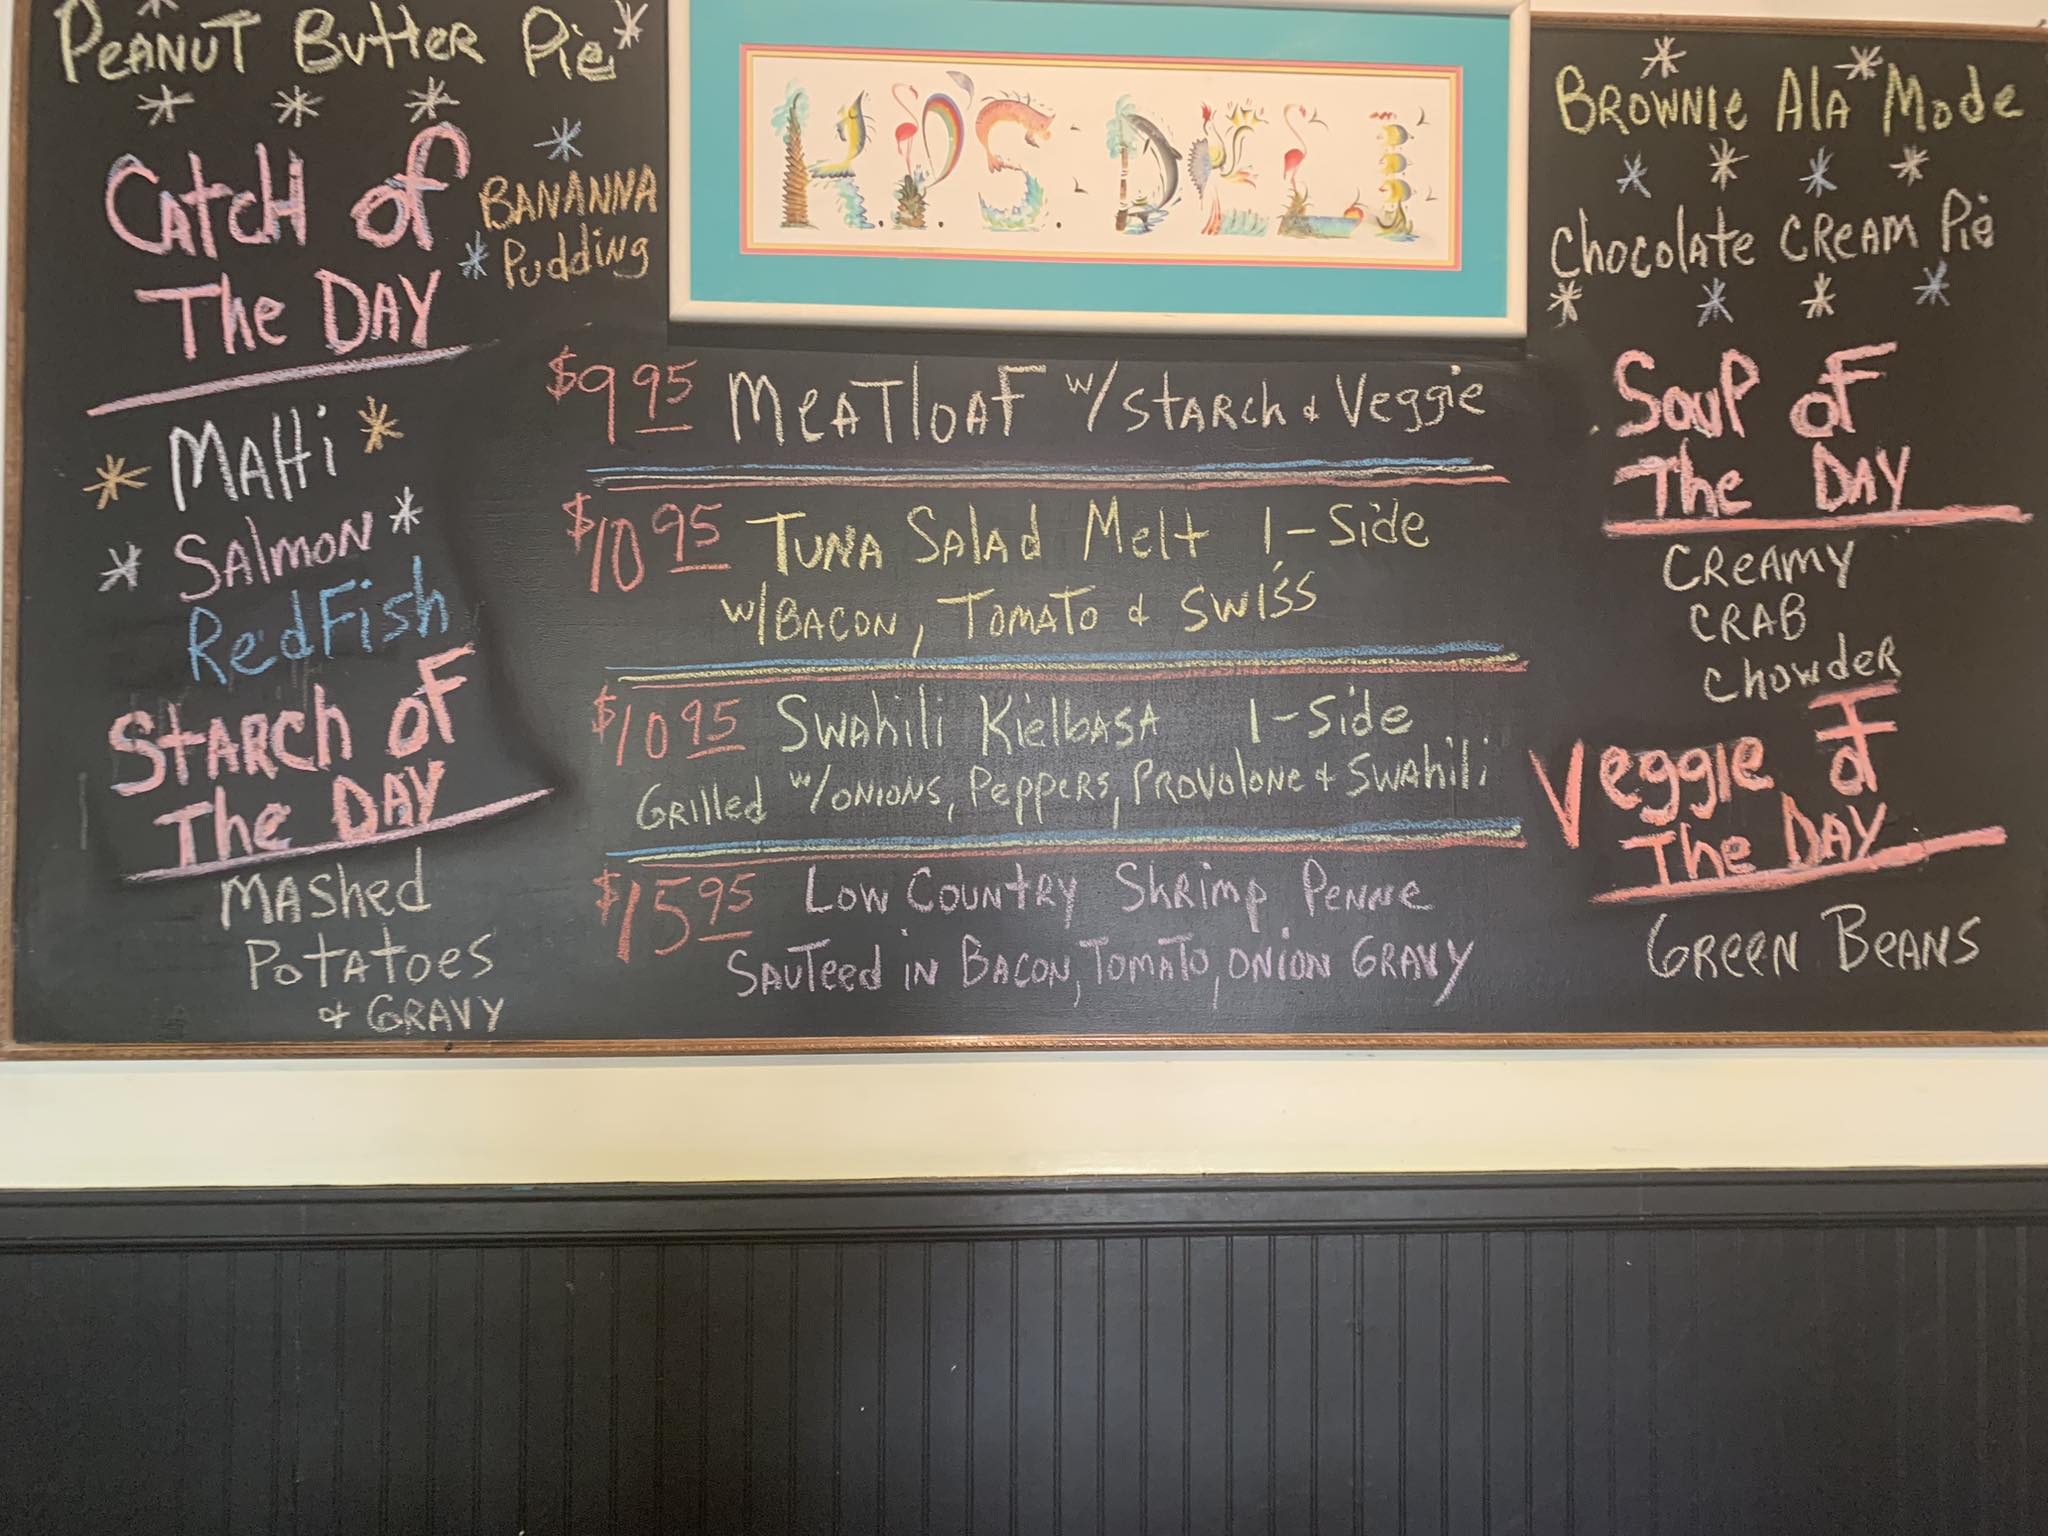 Peanut Butter Pie
Catch of
The Day
Bananna
Pudding
Mahi
Salmon
RedFish
Starch of
The Day
Mashed
Potatoes
& Gravy
H.P.S. DELI
$9.95 Meatloaf w/ Starch & Veggie
$10.95 Tuna Salad Melt 1-Side
w/ Bacon, Tomato & Swiss
$10.95 Swahili Kielbasa 1-Side
Grilled w/ Onions, Peppers, Provolone & Swahili
$15.95 Low Country Shrimp Penne
Sauteed in Bacon, Tomato, Onion Gravy
Brownie Ala Mode
Chocolate Cream Pie
Soup of
The Day
Creamy
Crab
Chowder
Veggie of
The Day
Green Beans